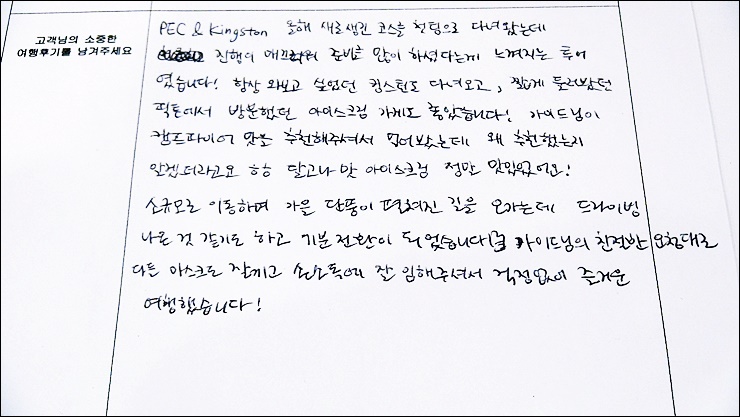 고객님의 소중한
여행후기를 남겨주세요
PEC & Kingston 올해 새로생긴 코스를 첫팀으로 다녀왔는데
진행이 매끄러워 준비를 많이 하셨다는게 느껴지는 투어
였습니다! 항상 와보고 싶었던 킹스턴도 다녀오고, 짧게 들러봤던
픽톤에서 방문했던 아이스크림 가게도 좋았습니다! 가이드님이
캠프파이어 맛을 추천해주셔서 먹어봤는데 왜 추천했는지
알겠더라고요 ㅎㅎ 달고나 맛 아이스크림 정말 맛있었어요!
소규모로 이동하며 가을 단풍이 펼쳐진 길을 오가는데 드라이빙
나온 것 같기도 하고 기분전환이 되었습니다 가이드님의 친절한 요청대로
다들 마스크도 잘끼고 손소독에 잘 임해주셔서 걱정없이 즐거운
여행했습니다!